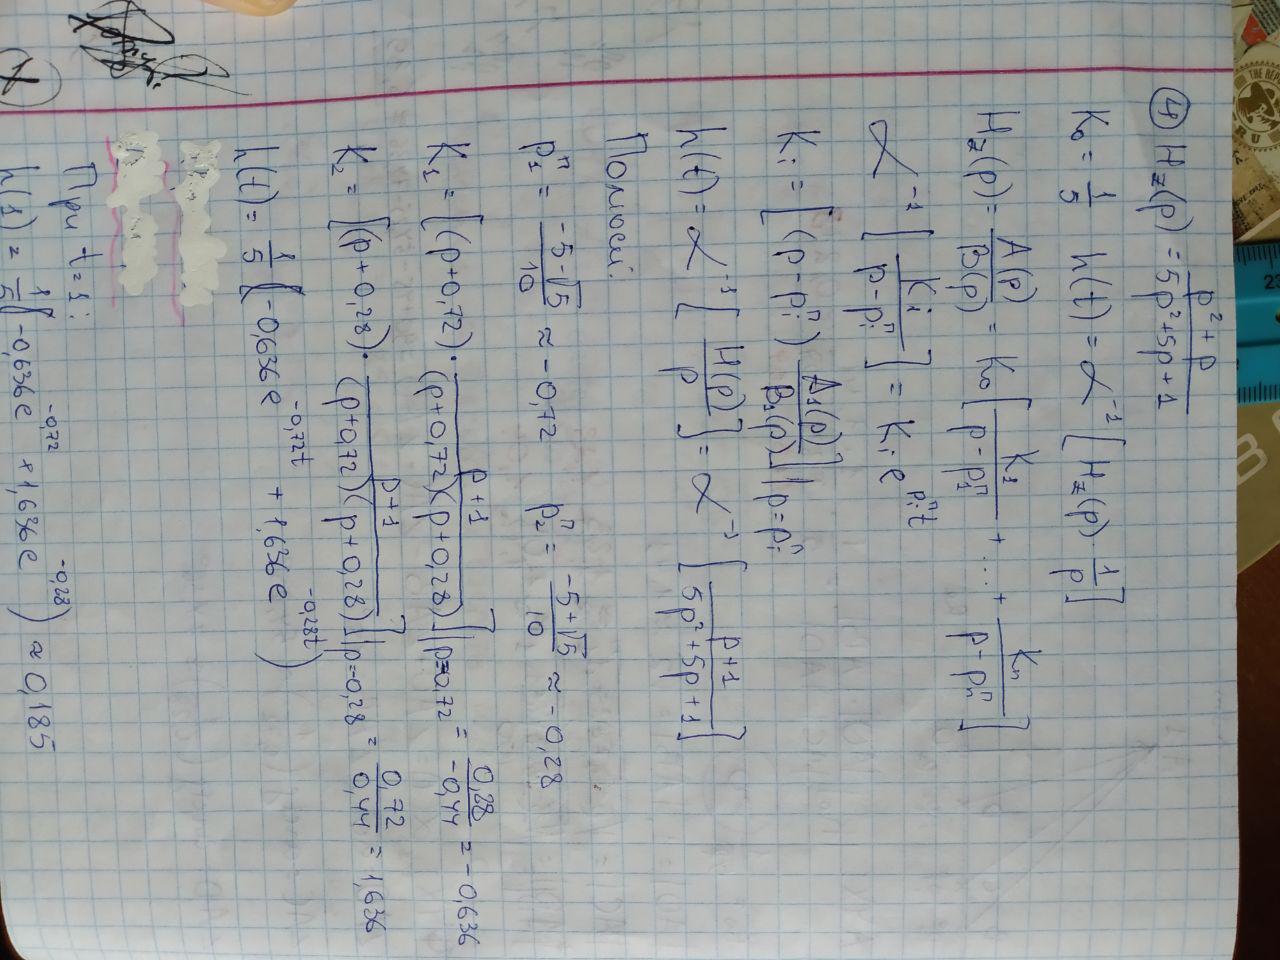 ④ H_z(p) = (p² + p)/(5p² + 5p + 1)
K₀ = 1/5   h(t) = ℒ⁻¹ [H_z(p) · 1/p]
H_z(p) = A(p)/B(p) = K₀ [K₁/(p − p₁ⁿ) + ... + Kₙ/(p − pₙⁿ)]
ℒ⁻¹ [Kᵢ/(p − pᵢⁿ)] = Kᵢ e^(pᵢⁿt)
Kᵢ = [(p − pᵢⁿ) A₁(p)/B₁(p)] | p = pᵢⁿ
h(t) = ℒ⁻¹ [H(p)/p] = ℒ⁻¹ [(p+1)/(5p² + 5p + 1)]
Полюси:
p₁ⁿ = (−5−√5)/10 ≈ −0,72   p₂ⁿ = (−5+√5)/10 ≈ −0,28
K₁ = [(p+0,72) · (p+1)/((p+0,72)(p+0,28))] | p=−0,72 = 0,28/−0,44 = −0,636
K₂ = [(p+0,28) · (p+1)/((p+0,72)(p+0,28))] | p=−0,28 = 0,72/0,44 = 1,636
h(t) = 1/5 (−0,636e^(−0,72t) + 1,636e^(−0,28t))
При t=1:
h(1) = 1/5 (−0,636e^(−0,72) + 1,636e^(−0,28)) ≈ 0,185